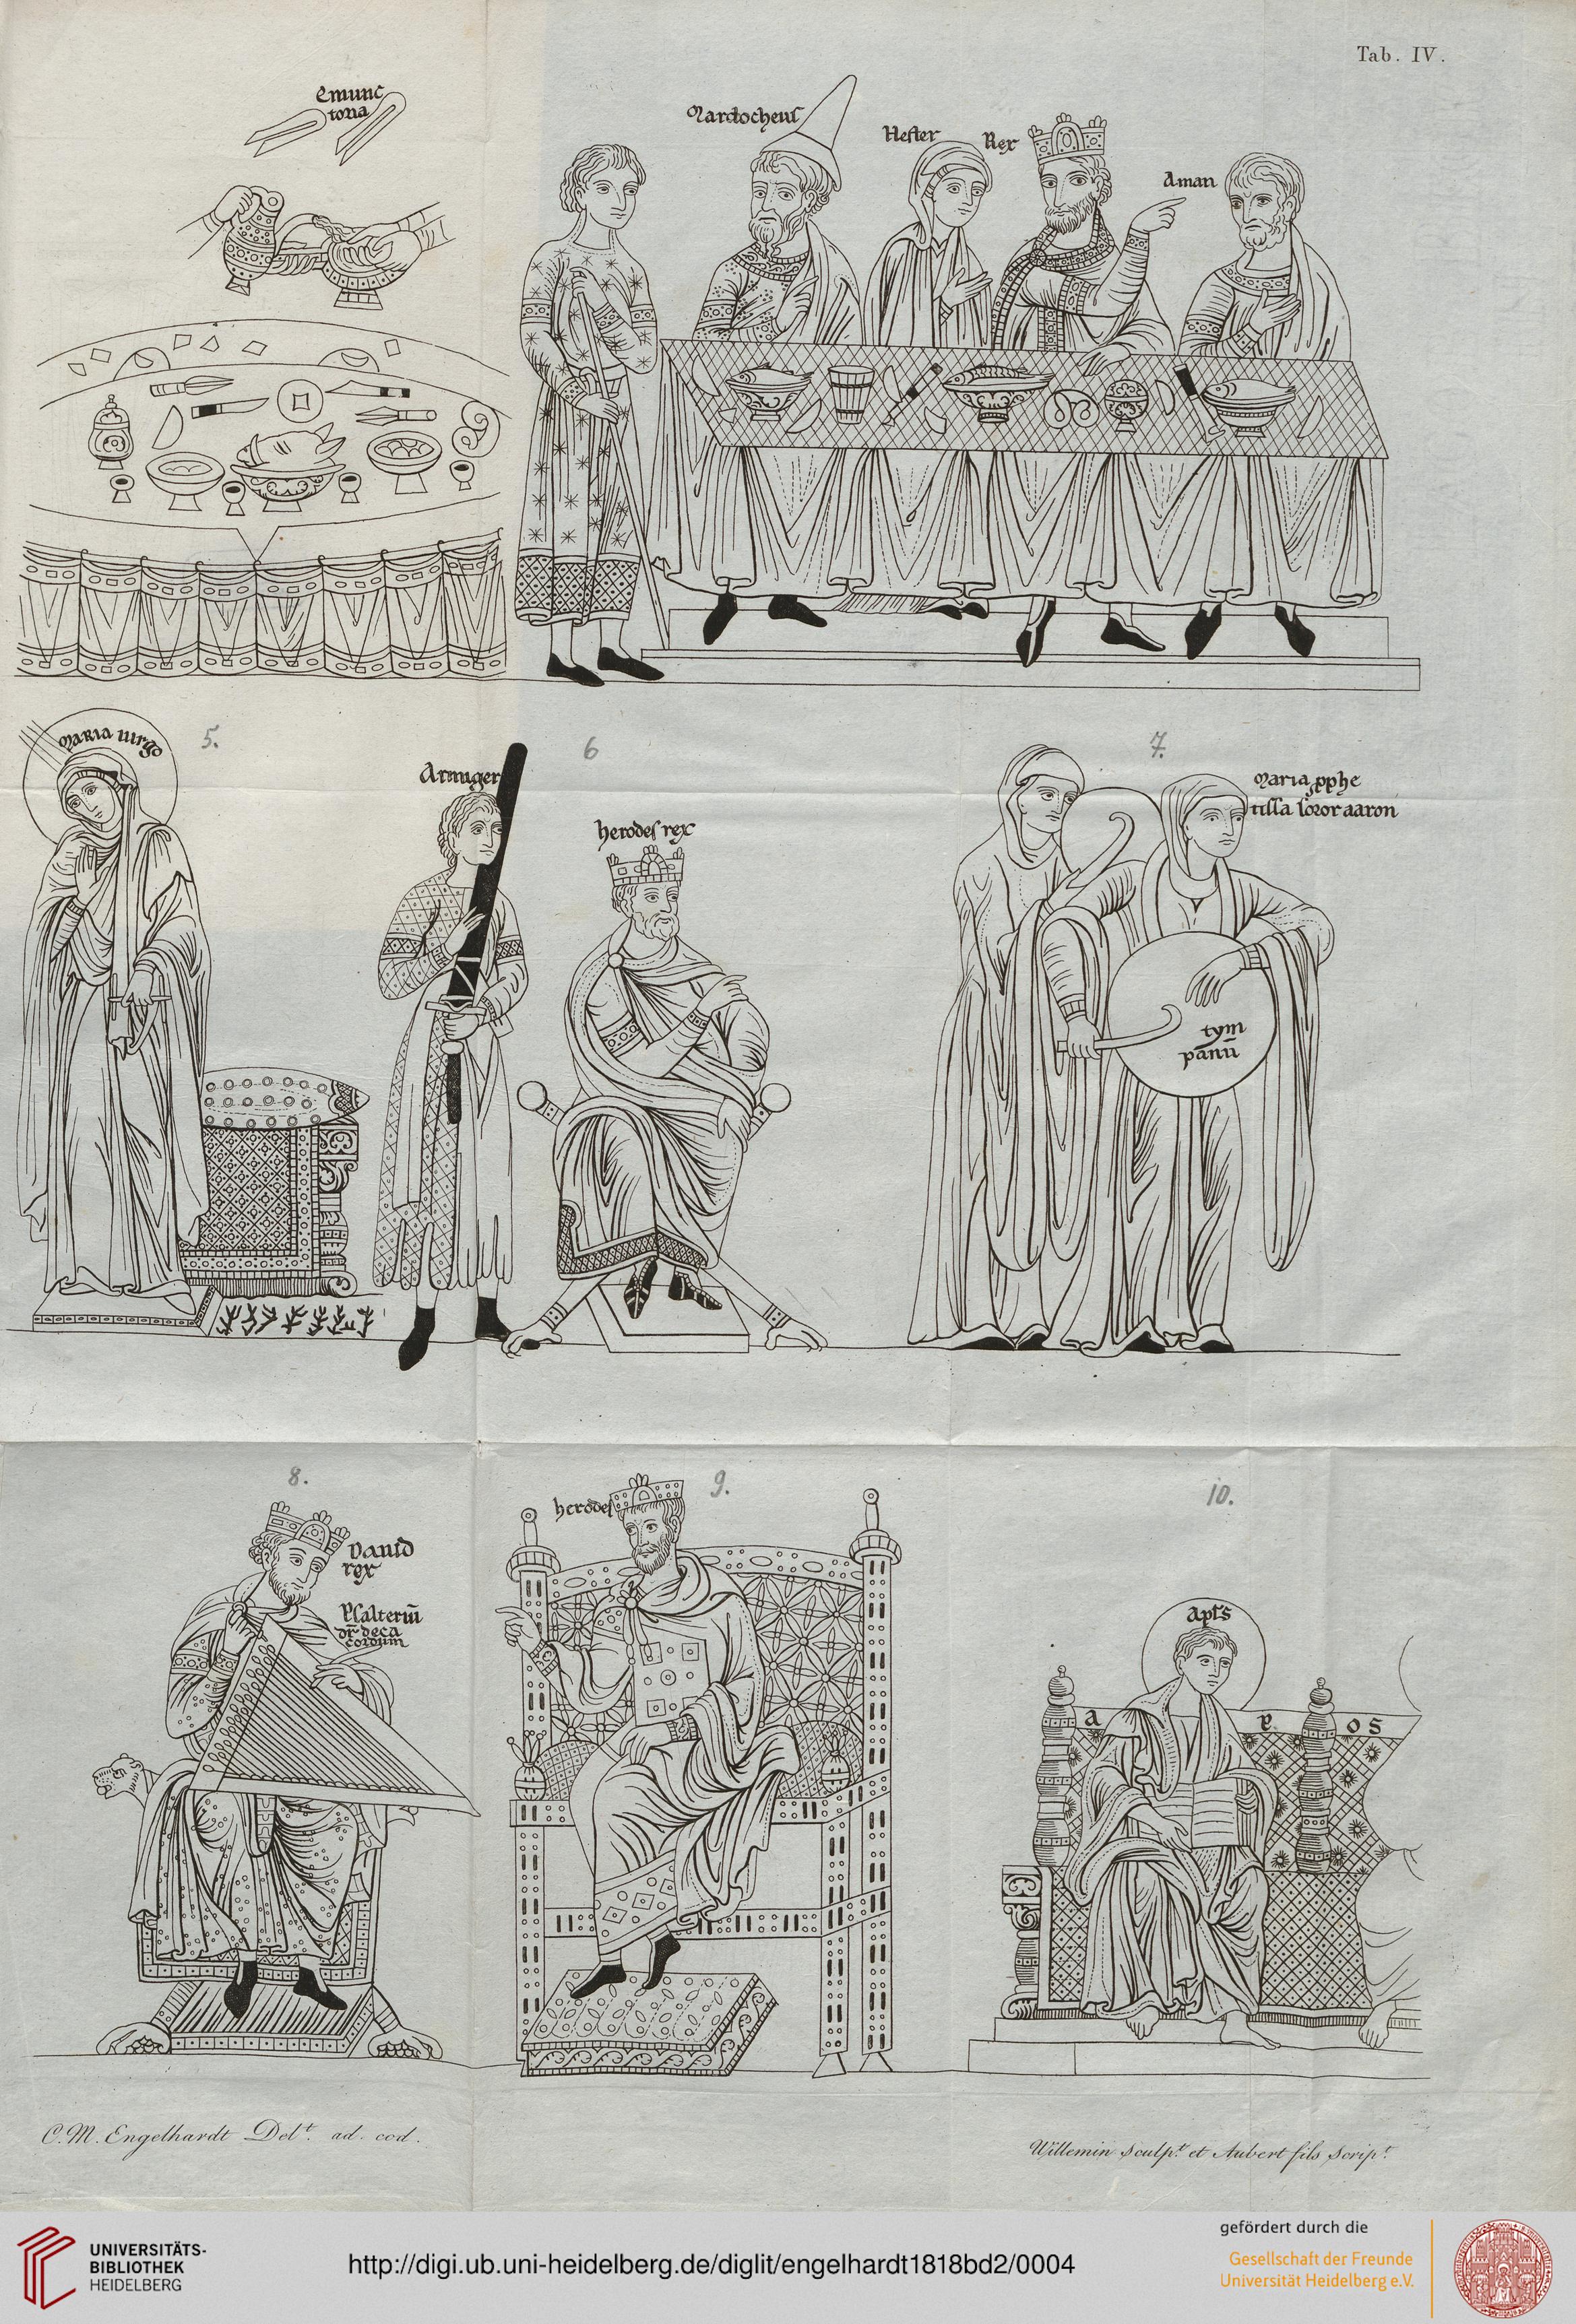 Tab. IV.
emunc
toria
Mardocheus
Hester
Rex
Aman
MARIA virgo
5.
Armiger
6
herodes rex
7.
Maria pphe
tissa soror aaron
tym
panū
8.
David
rex
Psalteriū
dr deca
cordum
9.
herodes
10.
apl's
a p os
C. M. Engelhardt Delt. ad. cod.
Willemin Sculpt. et Aubert fils Script.
UNIVERSITÄTS-
BIBLIOTHEK
HEIDELBERG
http://digi.ub.uni-heidelberg.de/diglit/engelhardt1818bd2/0004
gefördert durch die
Gesellschaft der Freunde
Universität Heidelberg e.V.